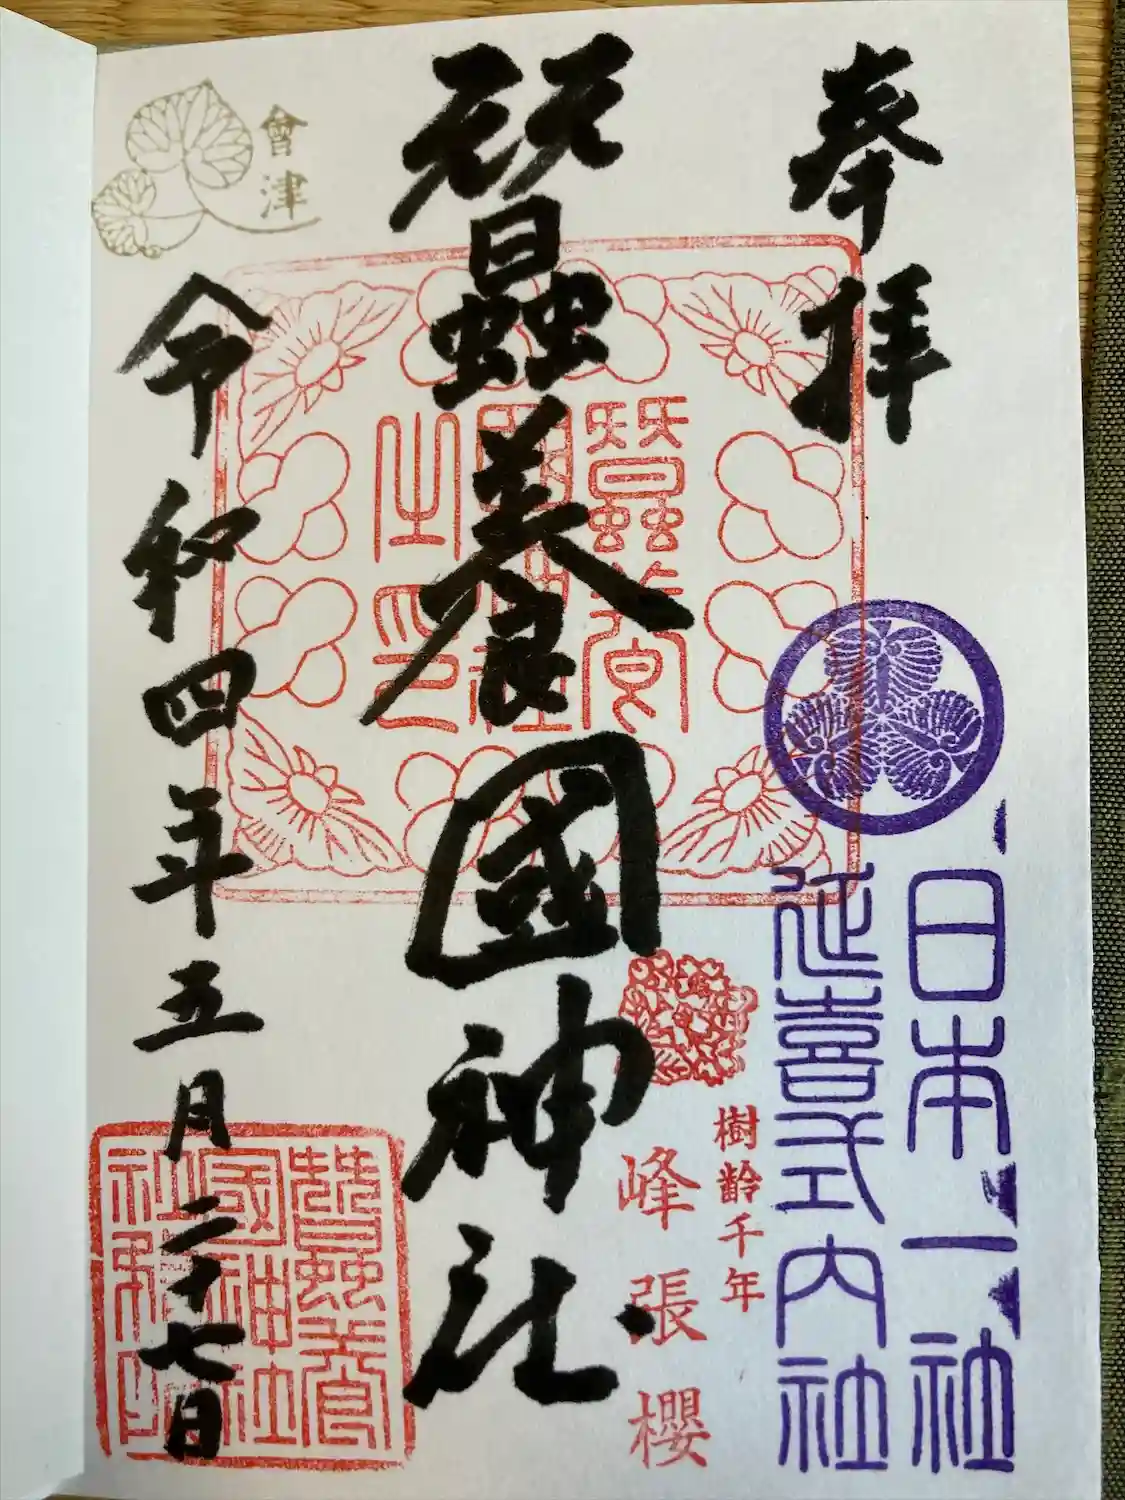 奉拝
日本一社
延喜式内社
樹齢千年
峰張櫻
蠶養國神社
蠶養
國神社
之印
會津
令和四年五月二十七日
蠶養
國神社